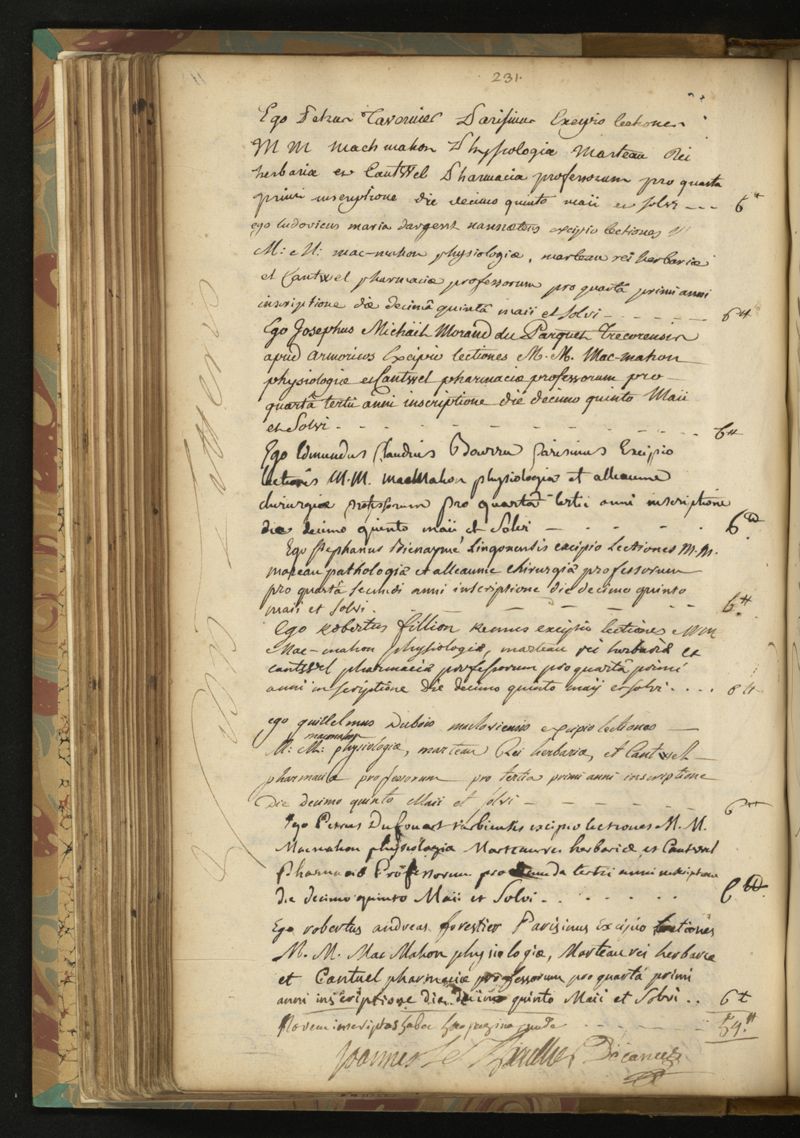 231.
Ego Petrus Tavernier Parisinus Excipio lectiones
M M mach mahon Physiologiæ Marteau Rei
herbariæ et Cantwel Pharmacia professorum pro quarta
primi inscriptione die decimo quinto maii et solvi --- 6tt
ego ludovicus maria dargent nannætensis excipio lectiones
M: M: mac-mahon physiologiæ, marteau rei herbariæ
et Cantwel pharmaciæ professorum pro quartâ primi anni
inscriptione die decimâ quintâ maii et solvi - - - - - - 6tt
Ego Josephus Michael Morand du Parquet Trecorensis
apud armoricos Excipio lectiones M. M. Mac-mahon
physiologiæ et Cantwel pharmaciæ professorum pro
quartâ tertii anni inscriptione die decimo quinto Maii
et Solvi - - - - - - - - 6tt
Ego Edmundus Claudius parisinus Excipio
lectiones M.M. macMahon physiologia et alleaume
chirurgiæ professorum pro quartâ tertii anni inscriptione
die decimo quinto maii et Solvi - - - - - 6tt
Ego Stephanus Bienaymé Lingonensis excipio Lectiones M. M.
moreau pathologiæ et alleaume chirurgiæ professorum
pro quartâ secundi anni inscriptione die decimo quinto
maii et solvi. - - - - - - 6tt
Ego Robertus fillion excipio lectiones MM
Mac-mahon physiologiæ, marteau rei herbariæ et
cantwel pharmaciæ professorum pro quartâ primi
anni inscriptione die decimo quinto maij et solvi . . . . 6tt
ego guillelmus Dubois excipio lectiones
M: M: macmahon physiologiæ, marteau Rei herbariæ, et Cantwell
pharmaciæ professorum pro tertia primi anni inscriptione
Die decimo quinto Maii et solvi - - - - - 6tt
Ego Petrus Dufouart excipio lectiones M. M.
Macmahon physiologiæ Marteau rei herbariæ et Cantwel
Pharmaciæ Professorum pro tertii anni inscriptione
die decimo quinto Maii et Solvi . . . . . . . 6tt
Ego robertus andreas forestier Parisinus Excipio lectiones
M. M. Mac Mahon physiologiæ, Marteau rei herbariæ
et Cantuel pharmaciæ professorum pro quartâ primi
anni inscriptione die decimo quinto Maii et Solvi . . 6tt
Novem inscriptos habet hæc pagina - - - 54tt
Joannes Le Thieullier Decanus